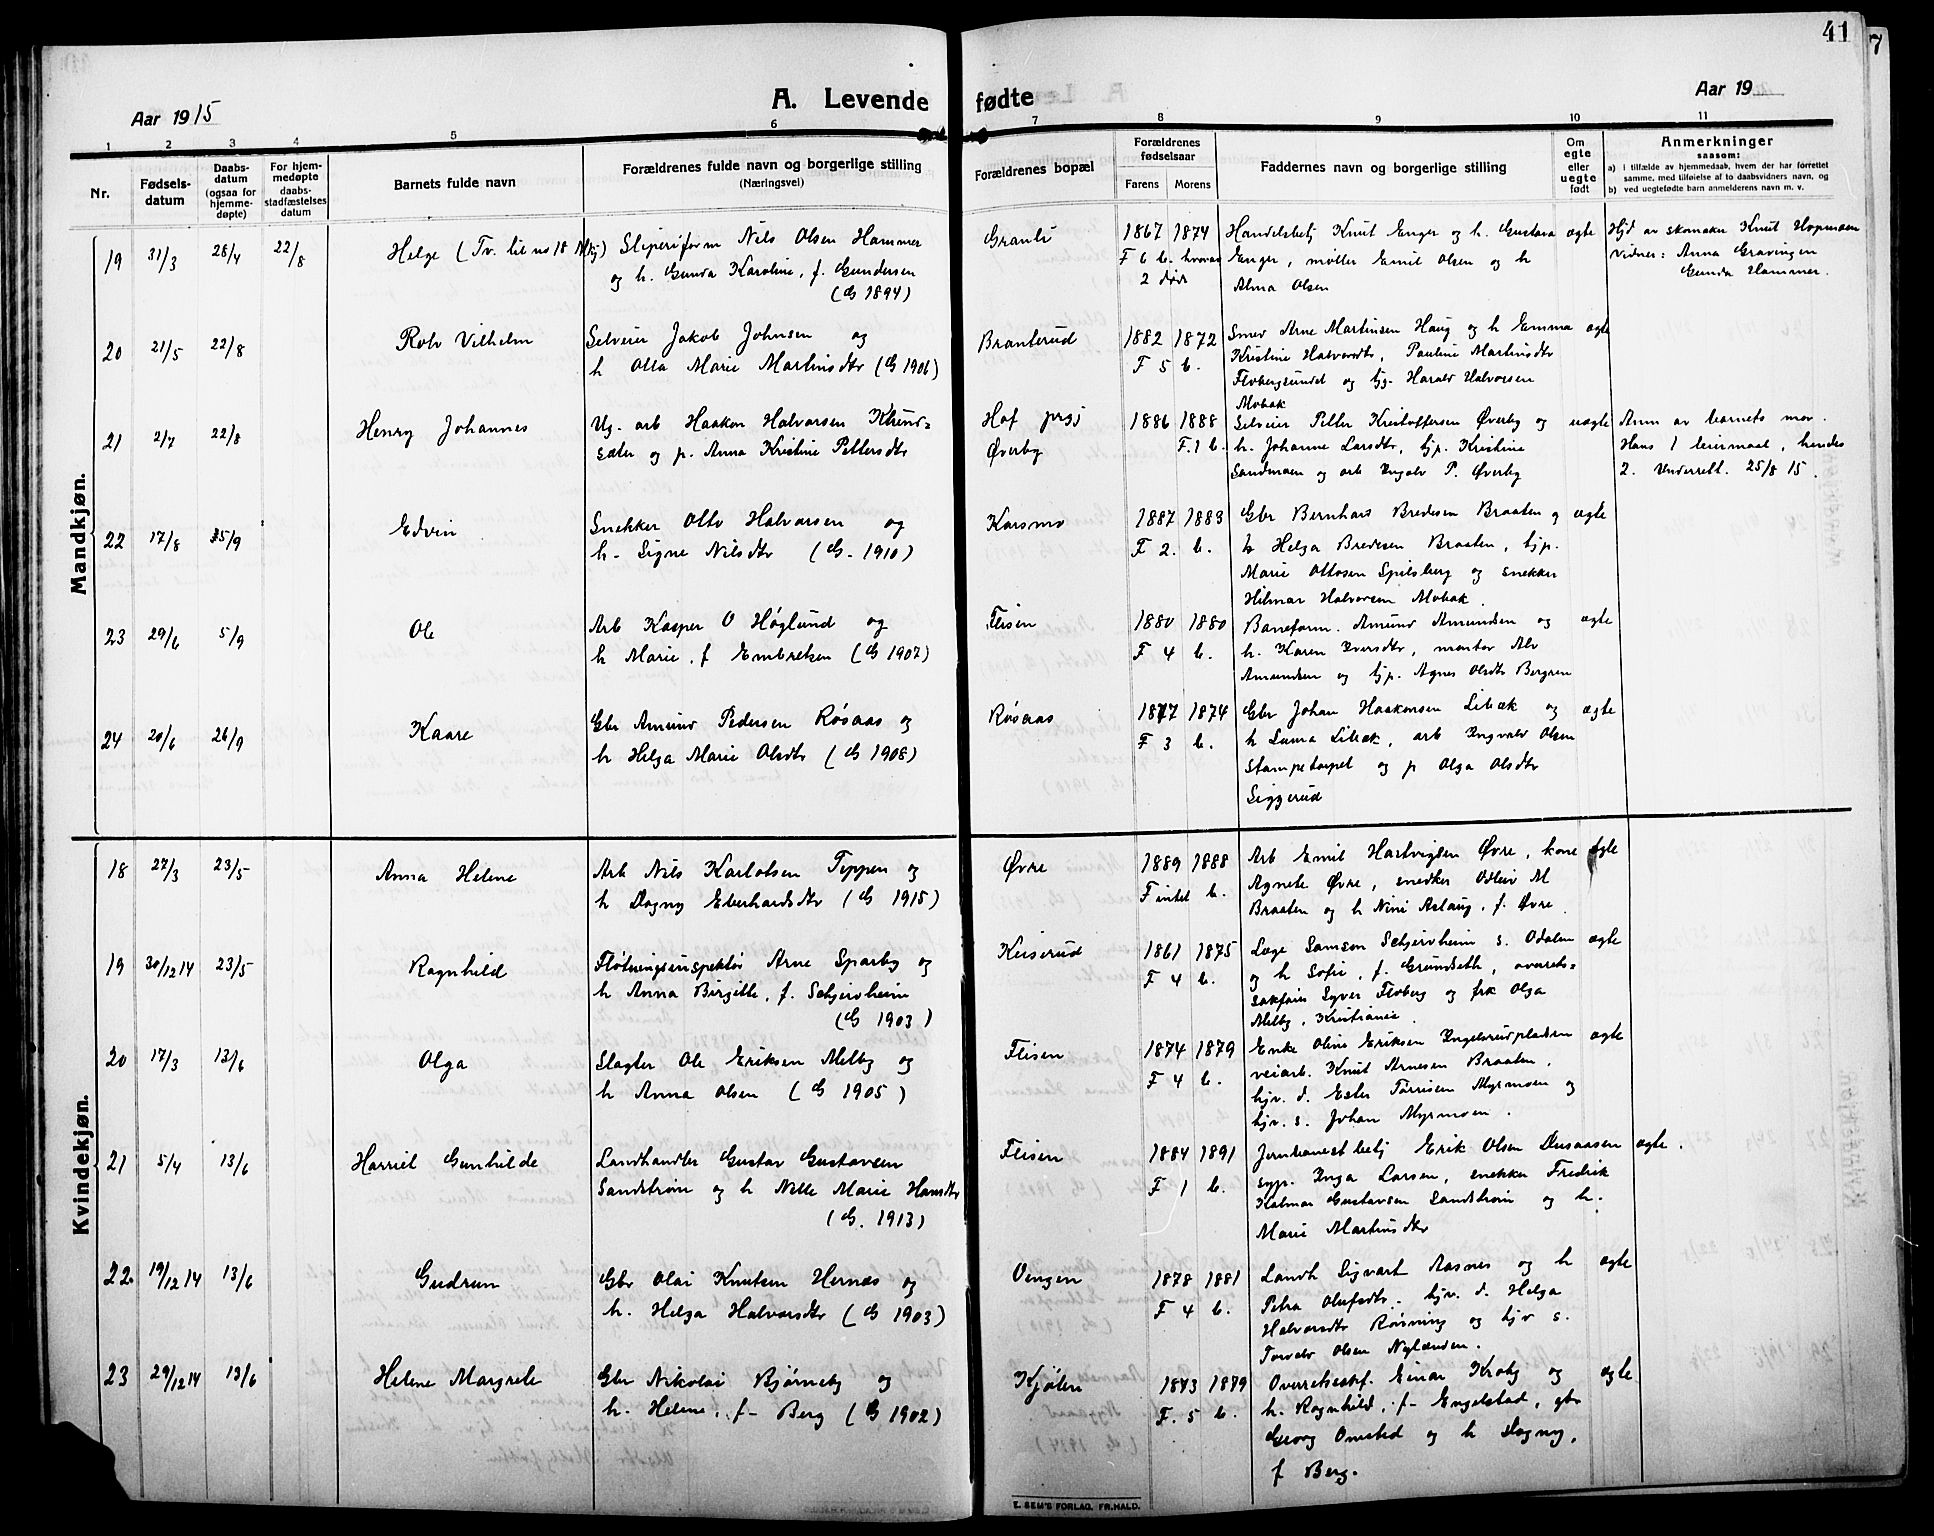 41
7
A. Levende fødte
Aar 1915
Aar 19
1 2 3 4 5 6 7 8 9 10 11
Nr.
Fødsels-
datum
Daabs-
datum
(ogsaa for
hjemme-
døpte)
For hjem-
medøpte
daabs-
stadfæstelses
datum
Barnets fulde navn
Forældrenes fulde navn og borgerlige stilling
(Næringsvei)
Forældrenes bopæl
Forældrenes
fødselsaar
Farens Morens
Faddernes navn og borgerlige stilling
Om
egte
eller
uegte
født
Anmerkninger
saasom:
a) i tilfælde av hjemmedaab, hvem der har forrettet
samme, med tilføielse af to daabsvidners navn, og
b) ved uegtefødte barn anmelderens navn m. v.
Mandkjøn.
19 31/3 28/4 22/8 Helge (Tv. til no 18
Sliperiform Nils Olsen Hammer
og h. Gunda Karoline, f. Gundersen
(G 1894)
Granli
1867 1874
F 6 b. hvorav
2 døde
Handelsbetj Knut Enger og h. Gustava
Enger, møller Emil Olsen og h
Alma Olsen
ægte
Hjd av skomaker Knut Hopmoen
Vidner: Anna Gravingen
Gunda Hammer.
20 21/5 22/8 Rolv Vilhelm
Selveier Jakob Johnsen og
h Olla Marie Martinsdtr (G 1906)
Branterud
1882 1872
F 5 b.
Smed Arne Martinsen Haug og h Emma
Kristine Halvorsdtr, Pauline Martinsdtr
Flobergsundet og tjg. Harald Halvorsen
Mobak
ægte
21 2/7 22/8 Henry Johannes
Ug. arb Haakon Halvorsen Khund=
sæter og p. Anna Kristine Pettersdtr
Hof prgj
Øverby
1886 1888
F. 1 b.
Selveier Petter Kristoffersen Øverby og
h. Johanne Larsdtr, tjp. Kristine
Sandmoen og arb Ingolv P. Øverby
uægte
Anm av barnets mor.
Hans 1 leiermaal, hendes
2. Underrett. 25/8 15.
22 17/8 5/9 Edvin
Snekker Otto Halvorsen og
h. Signe Nilsdtr (G. 1910)
Korsmo
1887 1883
F 2. b.
Gbr Bernhard Bredesen Braaten og
h Helga Bredesen Braaten, tjp.
Marie Ottosen Spilsberg og snekker
Hilmar Halvorsen Mobak.
ægte
23 29/6 5/9 Ole
Arb Kasper O Høglund og
h Marie, f Embretsen (G 1907)
Fleisen
1880 1880
F 4 b.
Baneform. Amund Amundsen og
h. Karen Iversdtr, montør Alv
Amundsen og tjp. Agnes Olsdtr Bergren
ægte
24 20/6 26/9 Kaare
Gbr Amund Pedersen Røsaas og
h Helga Marie Olsdtr (G 1908)
Røsaas
1877 1874
F 3 b.
Gbr Johan Haakonsen Libæk og
h Laura Libæk, arb Ingvald Olsen
Stampetorpet og p Olga Olsdtr
Siggerud
ægte
Kvindekjøn.
18 27/3 23/5 Anna Helene
Arb Nils Karlotsen Teppen og
h Dagny Eberhardsdtr (G 1915)
Øvre
1889 1888
F intet b.
Arb Emil Hartvigsen Øvre, kone
Agnete Øvre, snedker Odleiv M
Braaten og h Nini Aslaug, f. Øvre
ægte
19 30/12 14 23/5 Ragnhild
Fløtningsinspektør Arne Sparby og
h Anna Birgitte, f. Schjervheim
(G 1903)
Keiserud
1861 1875
F 4 b.
Læge Samson Schjervheim s. Odalen
og h Sofie, f. Grundseth, overrets=
sakfører Syver Floberg og frk Olga
Melby, Kristiania.
ægte
20 17/3 13/6 Olga
Slagter Ole Eriksen Melby og
h Anna Olsen (G 1905)
Fleisen
1874 1879
F 4 b.
Enke Oline Eriksen Ingelsrudpladsen
veiarb. Knut Arnesen Braaten,
hjv. d. Ester Torrisen Myrmoen og
hjv. s. Johan Myrmoen.
ægte
21 5/4 13/6 Harriet Gunhilde
Landhandler Gustav Gustavsen
Sandstrøm og h Nelle Marie Hansdtr
(G. 1913)
Fleisen
1884 1891
F 1 b.
Jernbanestbetj Erik Olsen Dusaasen
syp. Inga Larsen, snekker Fredrik
Kalmar Gustavsen Sandstrøm og h.
Marie Martinsdtr
ægte.
22 19/12 14 13/6 Gudrun
Gbr Olai Knutsen Hernæs og
h. Helga Halvorsdtr (G 1903)
Vengen
1878 1881
F 4 b.
Landh Sigvart Aasnes og h
Petra Olufsdtr. hjv. d. Helga
Halvorsdtr Rønning og hjv s.
Torvald Olsen Nylænden.
ægte
23 29/12 14 13/6 Helene Margrete
Gbr Nikolai Bjørneby og
h. Helene, f- Berg (G 1902)
Kjølen
1873 1879
F. 5 b.
Overretssakf. Einar Kroby og
h. Ragnhild, f- Engelstad, gbr
Georg Omsted og h Dagny,
f Berg.
ægte
E. SEM'S FORLAG, FR.HALD.